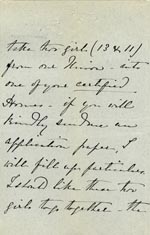 take two girls (13 & 11)
from one Union - into
one of your certified
Homes - if you will
kindly send me an
application paper, I
will fill up particulars
I should like these two
girls to go together - the